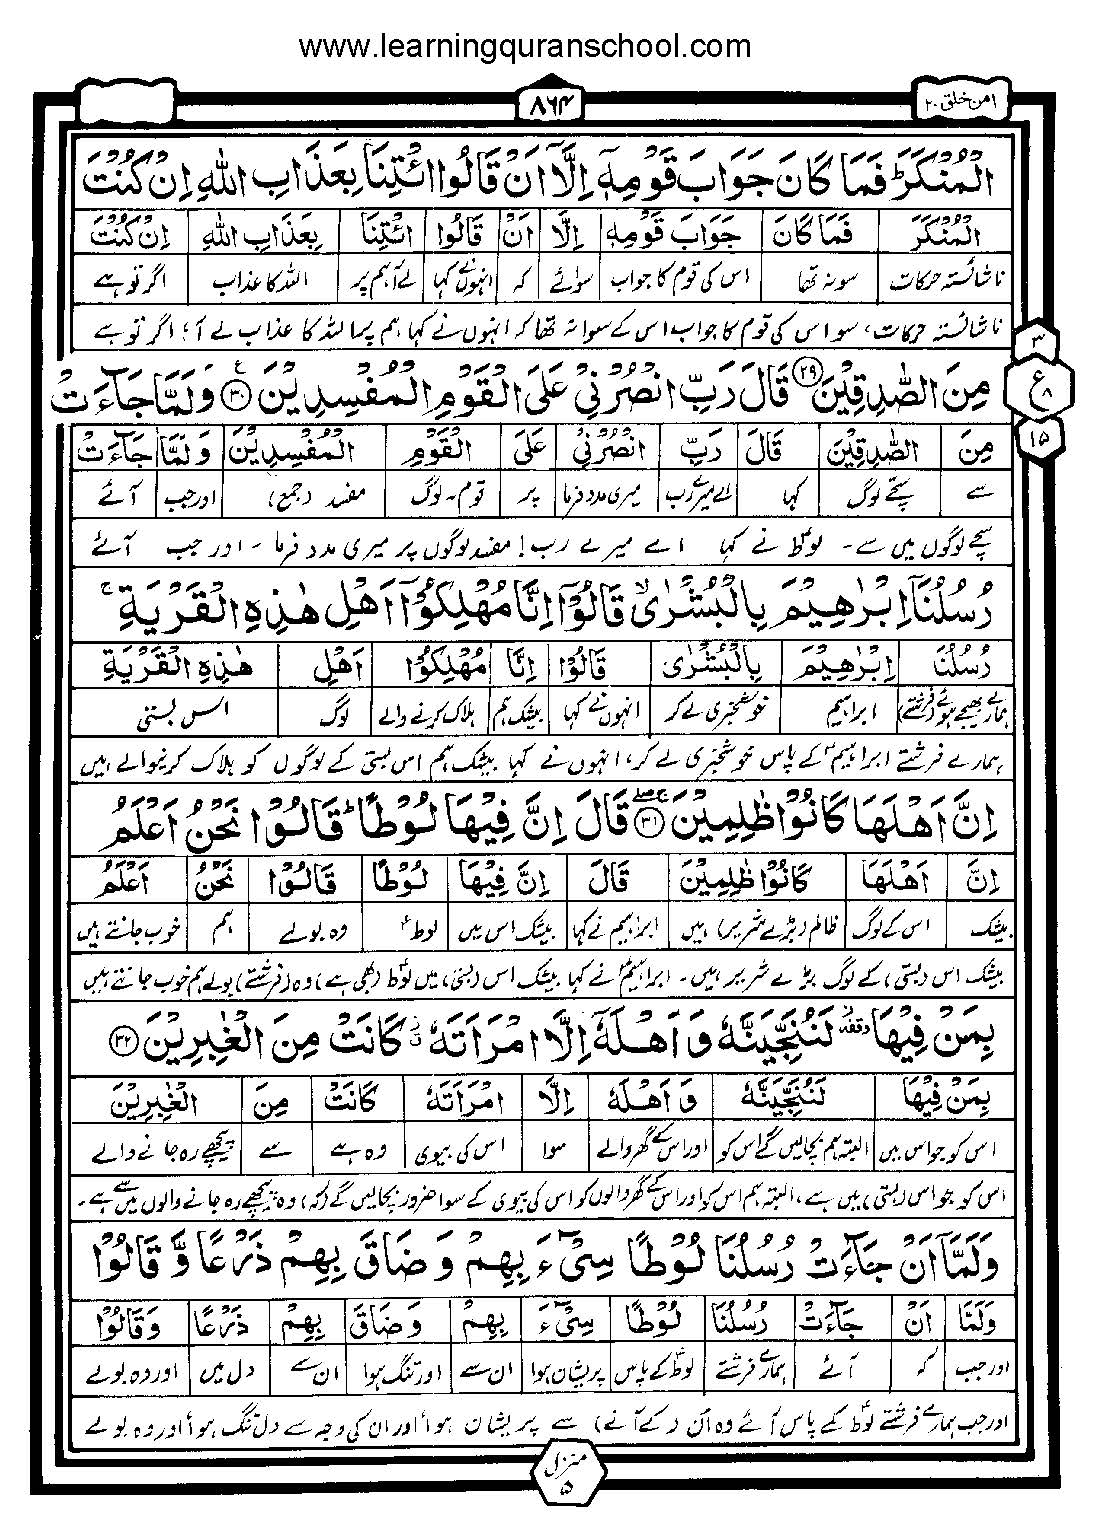 www.learningquranschool.com
امن خلق ۲۰
۸۶۴
الْمُنْكَرَ ؕ فَمَا كَانَ جَوَابَ قَوْمِهٖۤ اِلَّاۤ اَنْ قَالُوا ائْتِنَا بِعَذَابِ اللّٰهِ اِنْ كُنْتَ
الْمُنْكَرَ فَمَا كَانَ جَوَابَ قَوْمِهٖ اِلَّا اَنْ قَالُوا ائْتِنَا بِعَذَابِ اللّٰهِ اِنْ كُنْتَ
ناشائستہ حرکات سو نہ تھا اس کی قوم کا جواب سوائے کہ انہوں نے کہا لے آ ہم پر اللہ کا عذاب اگر تو ہے
ناشائستہ حرکات، سو اس کی قوم کا جواب اس کے سوا نہ تھا کہ انہوں نے کہا ہم پر اللہ کا عذاب لے آ، اگر تو ہے
۳
مِنَ الصّٰدِقِيْنَ ۲۹ قَالَ رَبِّ انْصُرْنِيْ عَلَى الْقَوْمِ الْمُفْسِدِيْنَ ۳۰ وَلَمَّا جَآءَتْ
ع ۸
۱۵
مِنَ الصّٰدِقِيْنَ قَالَ رَبِّ انْصُرْنِيْ عَلَى الْقَوْمِ الْمُفْسِدِيْنَ وَلَمَّا جَآءَتْ
سے سچے لوگ کہا اے میرے رب میری مدد فرما پر قوم۔ لوگ مفسد (جمع) اور جب آئے
سچے لوگوں میں سے۔ لوطؑ نے کہا اے میرے رب! مفسد لوگوں پر میری مدد فرما۔ اور جب آئے
رُسُلُنَاۤ اِبْرٰهِيْمَ بِالْبُشْرٰى ۙ قَالُوْۤا اِنَّا مُهْلِكُوْۤا اَهْلِ هٰذِهِ الْقَرْيَةِ ۚ
رُسُلُنَا اِبْرٰهِيْمَ بِالْبُشْرٰى قَالُوْا اِنَّا مُهْلِكُوْا اَهْلِ هٰذِهِ الْقَرْيَةِ
ہمارے بھیجے ہوئے (فرشتے) ابراہیم خوشخبری لے کر انہوں نے کہا بیشک ہم ہلاک کرنے والے لوگ اس بستی
ہمارے فرشتے ابراہیمؑ کے پاس خوشخبری لے کر، انہوں نے کہا بیشک ہم اس بستی کے لوگوں کو ہلاک کرنیوالے ہیں
اِنَّ اَهْلَهَا كَانُوْا ظٰلِمِيْنَ ۳۱ قَالَ اِنَّ فِيْهَا لُوْطًا ؕ قَالُوْا نَحْنُ اَعْلَمُ
اِنَّ اَهْلَهَا كَانُوْا ظٰلِمِيْنَ قَالَ اِنَّ فِيْهَا لُوْطًا قَالُوْا نَحْنُ اَعْلَمُ
بیشک اس کے لوگ ظالم (بڑے شریر) ہیں ابراہیم نے کہا بیشک اس میں لوطؑ وہ بولے ہم خوب جانتے ہیں
بیشک اس (بستی) کے لوگ بڑے شریر ہیں۔ ابراہیمؑ نے کہا بیشک اس (بستی) میں لوطؑ (بھی ہے) وہ (فرشتے) بولے ہم خوب جانتے ہیں
بِمَنْ فِيْهَا وقفہ لَنُنَجِّيَنَّهٗ وَ اَهْلَهٗۤ اِلَّا امْرَاَتَهٗ كَانَتْ مِنَ الْغٰبِرِيْنَ ۳۲
بِمَنْ فِيْهَا لَنُنَجِّيَنَّهٗ وَ اَهْلَهٗ اِلَّا امْرَاَتَهٗ كَانَتْ مِنَ الْغٰبِرِيْنَ
اس کو جو اس میں البتہ ہم بچالیں گے اس کو اور اس کے گھر والے سوا اس کی بیوی وہ ہے سے پیچھے رہ جانے والے
اس کو جو اس (بستی) میں ہے، البتہ ہم اس کو اور اس کے گھر والوں کو اس کی بیوی کے سوا ضرور بچالیں گے (کہ) وہ پیچھے رہ جانے والوں میں سے ہے۔
وَلَمَّاۤ اَنْ جَآءَتْ رُسُلُنَا لُوْطًا سِيْٓءَ بِهِمْ وَ ضَاقَ بِهِمْ ذَرْعًا وَّ قَالُوْا
وَلَمَّا اَنْ جَآءَتْ رُسُلُنَا لُوْطًا سِيْٓءَ بِهِمْ وَ ضَاقَ بِهِمْ ذَرْعًا وَقَالُوْا
اور جب کہ آئے ہمارے فرشتے لوطؑ کے پاس پریشان ہوا ان سے اور تنگ ہوا ان سے دل میں اور وہ بولے
اور جب ہمارے فرشتے لوطؑ کے پاس آئے وہ ان (کے آنے) سے پریشان ہوا اور ان کی وجہ سے دل تنگ ہوا اور وہ بولے
منزل ۵